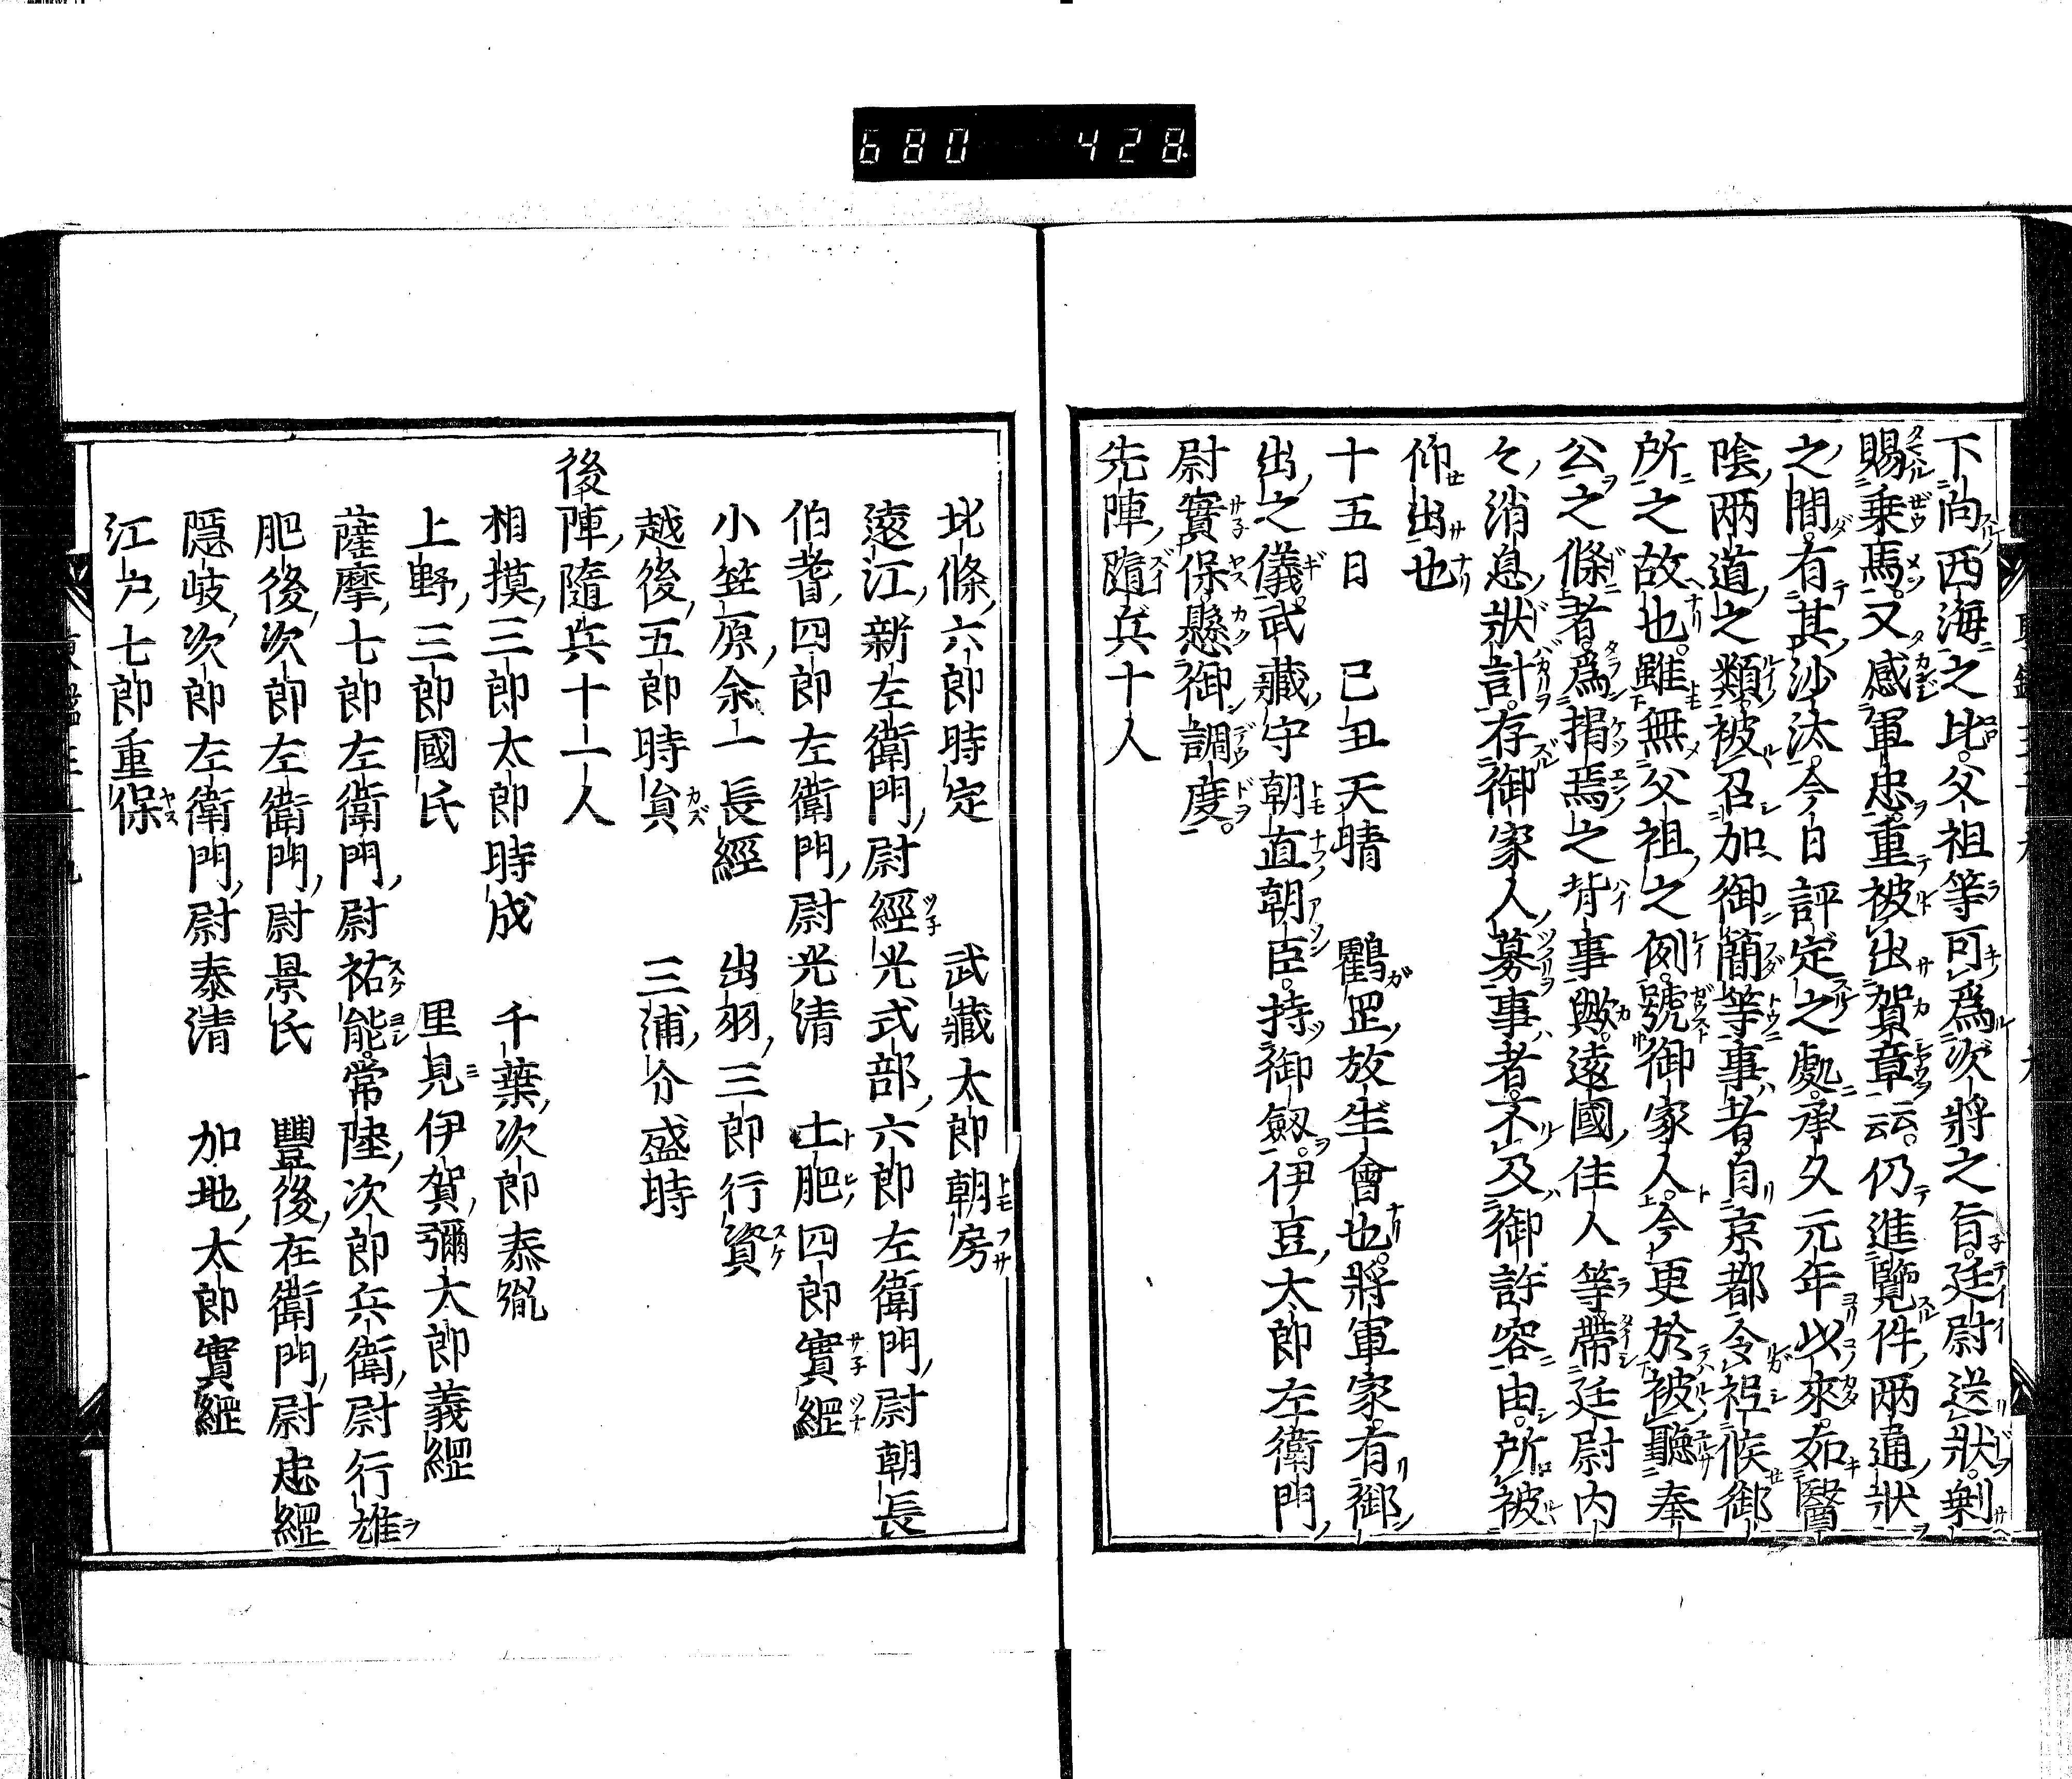 680 428
下向西海之比。父祖等可爲次將之旨。廷尉送狀。剰
賜乗馬。又感軍忠。重被出賀章云云。仍進覽件両通狀
之間。有其沙汰。今日評定之處。承久元年以來。如醫
陰両道之類。被召加御簡等事者。自京都令祗候御
所之故也。雖無父祖之例。號御家人。今更於被聽奉
公之條者。爲揖焉之背事歟。遠國住人等。帶廷尉内
々消息狀計。存御家人募事者。不及御許容由。所被
仰出也
十五日 己丑天晴 鶴罡放生會也。將軍家。有御
出之儀。武藏守朝直朝臣。持御劔。伊豆太郎左衛門
尉實保。懸御調度。
先陣隨兵十人
北條六郎時定 武藏太郎朝房
遠江新左衛門尉經光 式部六郎左衛門尉朝長
伯耆四郎左衛門尉光清 土肥四郎實綱
小笠原余一長經 出羽三郎行資
越後五郎時貟 三浦介盛時
後陣隨兵十一人
相摸三郎太郎時成 千葉次郎泰胤
上野三郎國氏 里見伊賀彌太郎義經
薩摩七郎左衛門尉祐能 常陸次郎兵衛尉行雄
肥後次郎左衛門尉景氏 豐後在衛門尉忠綱
隠岐次郎左衛門尉泰清 加地太郎實綱
江戸七郎重保